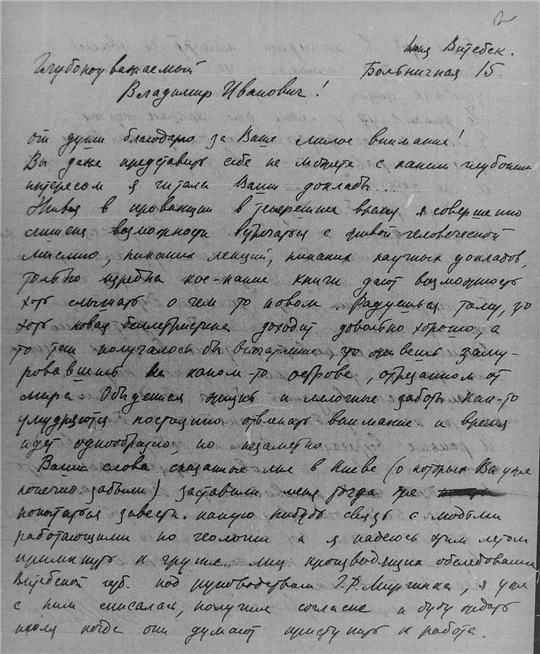 2
Витебск.
Больничная 15.
Глубокоуважаемый
Владимир Иванович!
от души благодарю за Ваше милое внимание!
Вы даже представить себе не можете с каким глубоким
интересом я читала Ваши доклады...
Живя в провинции в теперешнее время я совершенно
лишена возможности встречаться с живой человеческой
мыслью, никаких лекций, никаких научных докладов,
только изредка кое-какие книги дают возможность
хоть слышать о чем то новом. Радуешься тому, что
хоть новая беллетристика доходит довольно хорошо, а
то так получалось бы впечатление, что живешь заму-
ровавшись на каком-то острове, отрезанном от
мира. Обыденная жизнь и мелочные заботы как-то
умудряются постоянно отвлекать внимание и время
идет однообразно, но незаметно.
Ваши слова сказанные мне в Киеве (о которых Вы уже
конечно забыли) заставили меня тогда же
попытаться завести какую нибудь связь с людьми
работающими по геологии и я надеюсь этим летом
примкнуть к группе лиц производящих обследование
Витебской губ. под руководством Г.Ф. Мирчинка, я уже
с ним списалась, получила согласие и буду ждать
июля когда они думают приступить к работе.